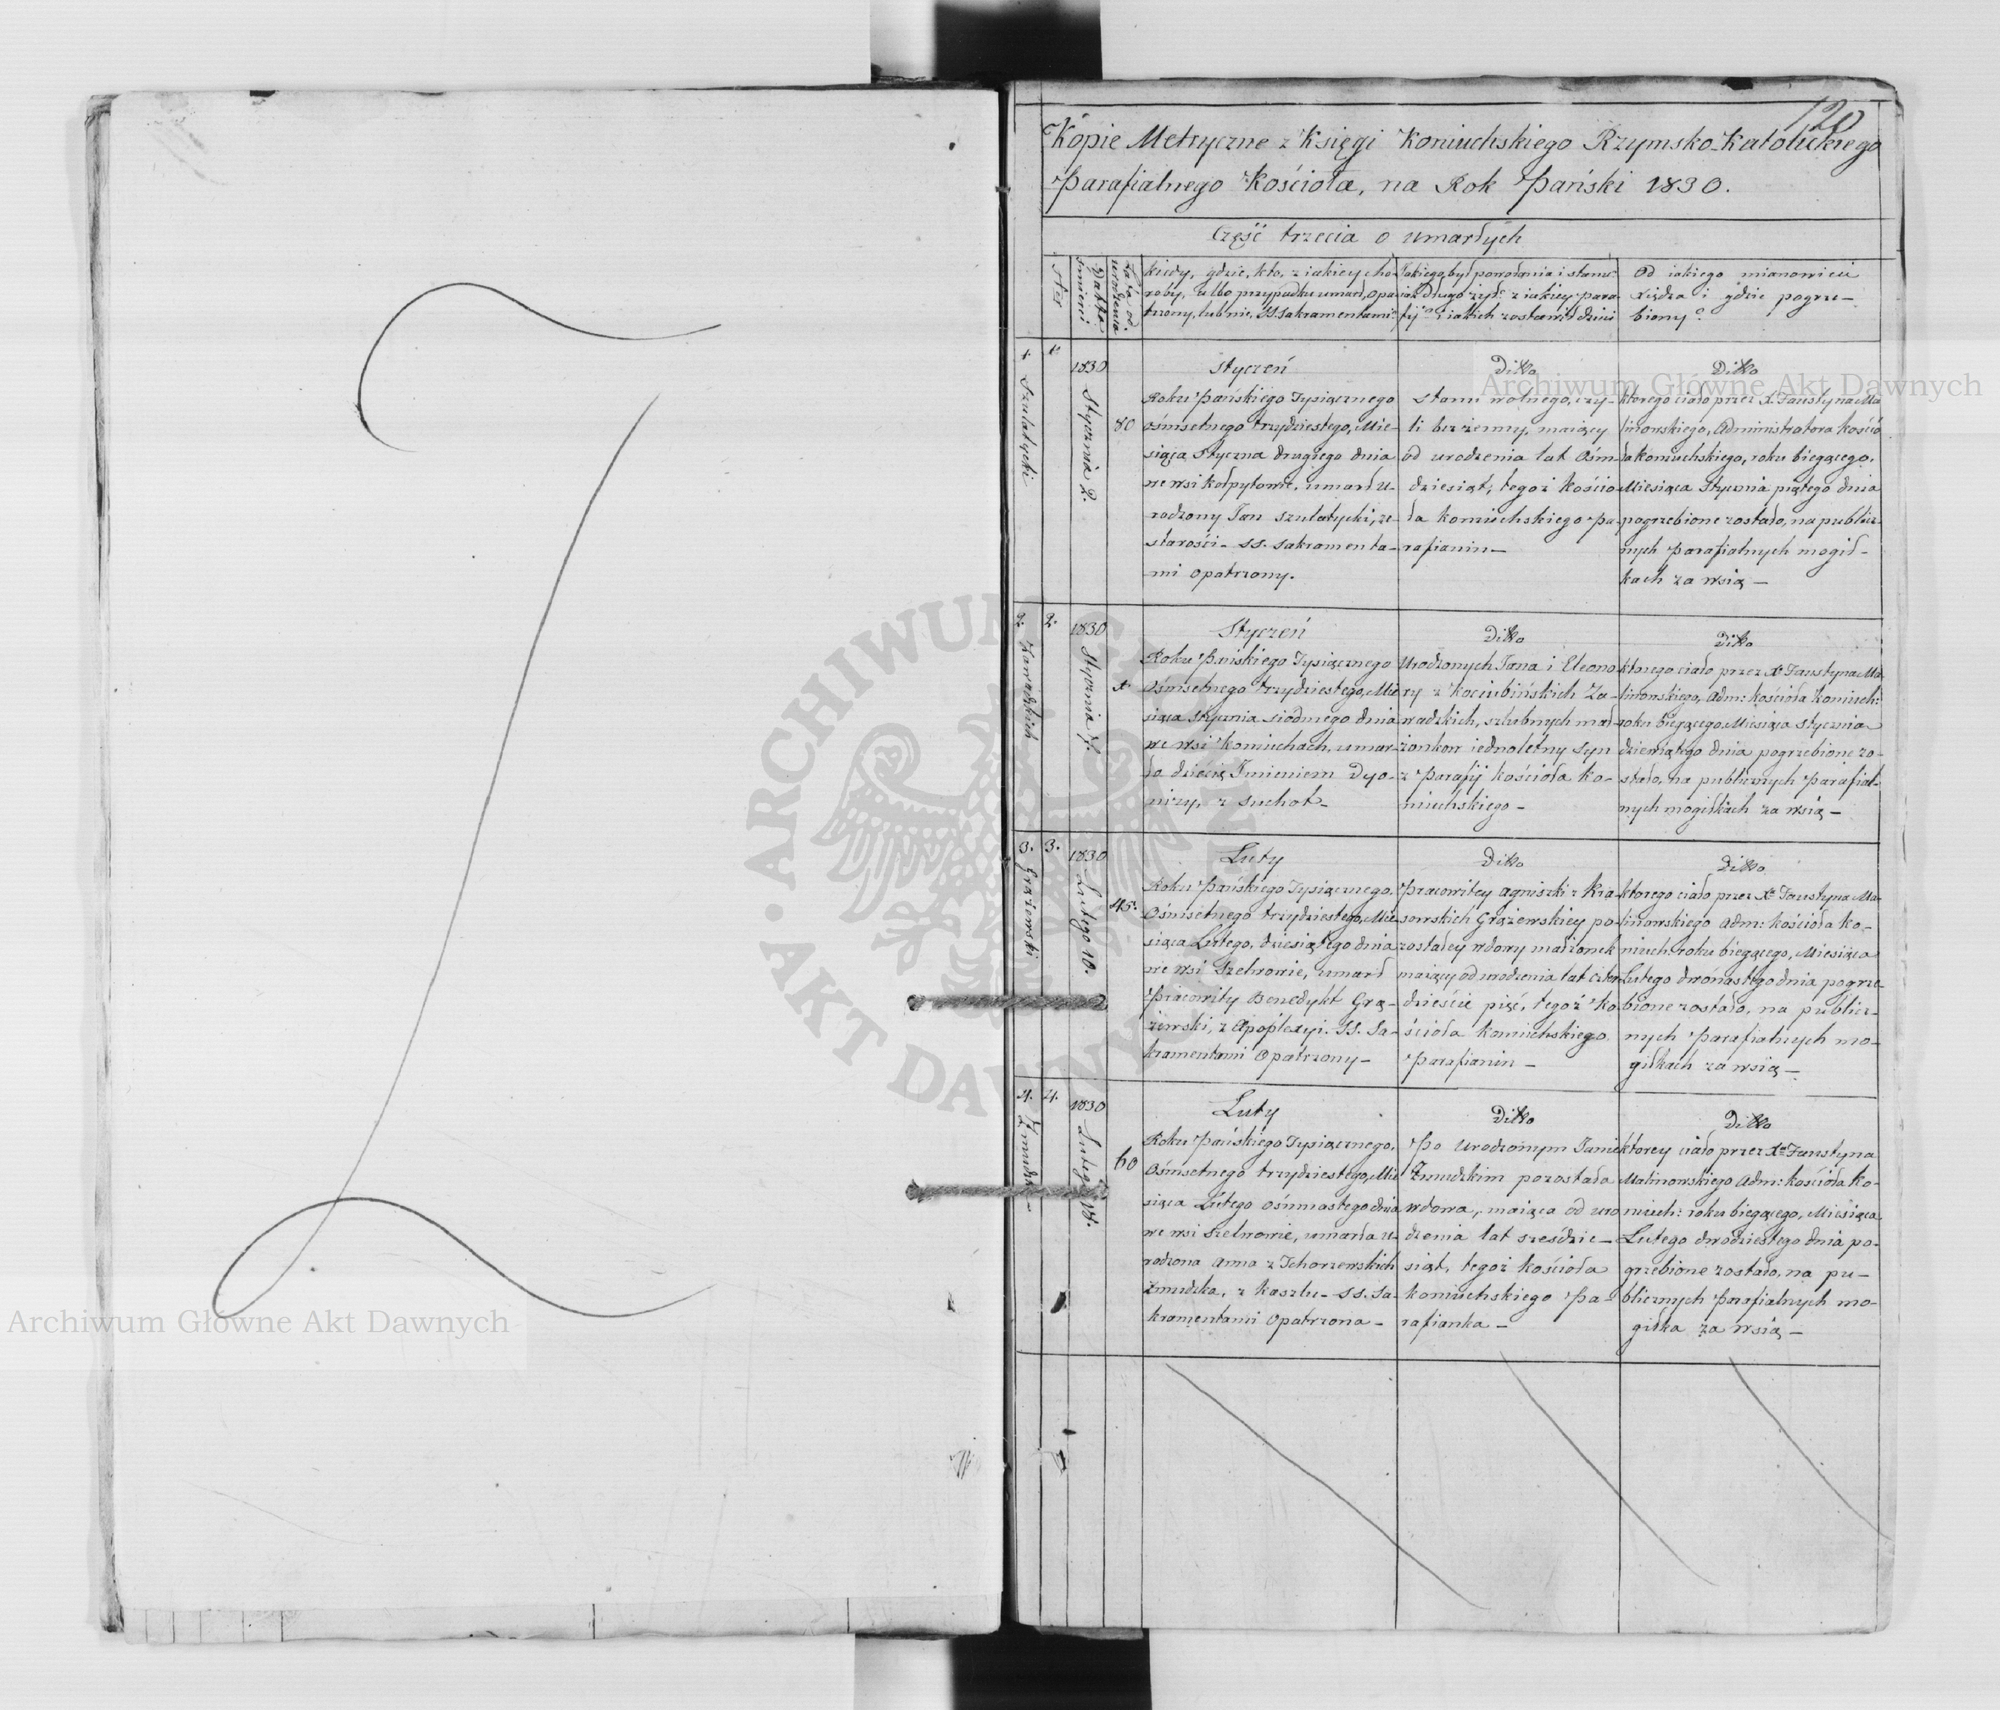 120
Kópie Metryczne z Księgi Koniuchskiego Rzymsko-Katolickiego
Parafialnego Kościoła, na Rok Pański 1830.
Część trzecia o umarłych
Ster
Datta śmierci
Lata od urodzenia
kiedy, gdzie, kto, z iakiey cho-
roby, albo przypadku umarł, opa-
trzony, lub nie, SS. Sakramentami?
Jakiego był powołania i stanu?
iak długo żył? z iakiey para-
fij? i iakich zostawił dzieci
Od iakiego mianowicie
Xiędza i gdzie pogrze-
biony?
1. Szulatycki
1.
1830 Stycznia 2.
80
Styczeń
Roku Pańskiego Tysiącznego
Ośmsetnego trzydziestego, Mie-
siąca Styczna drugiego dnia
we wsi Kołpytowie, umarł U-
rodzony Jan Szulatycki, ze
starości - SS. Sakramenta-
mi opatrzony.
Ditto
Stanu wolnego, czy-
li bezżenny, maiący
od urodzenia lat Ośm-
dziesiąt, tegoż Kościo-
ła Koniuchskiego Pa-
rafianin -
Ditto
którego ciało przez X. Faustyna Ma-
linowskiego, Administratora Kośció-
ła Koniuchskiego, roku biegącego,
Miesiąca Stycznia piątego dnia
pogrzebione zostało, na publicz-
nych Parafialnych mogił-
kach za wsią -
2. Zawadzkich
2.
1830 Stycznia 7.
Styczeń
Roku Pańskiego Tysiącznego
Ośmsetnego trzydziestego, Mie-
siąca Stycznia siódmego dnia
we wsi Koniuchach, umar-
ło dziecię Imieniem Dyo-
nizy, z suchot -
Ditto
Urodzonych Jana i Eleono-
ry z Kociubińskich Za-
wadzkich, szlubnych mał-
żonkow iednoletny syn
z Parafij Kościoła Ko-
niuchskiego -
Ditto
którego ciało przez X. Faustyna Ma-
linowskiego, Adm: Kościoła Koniuch:
roku biegącego, Miesiąca Stycznia
dziewiątego dnia pogrzebione zo-
stało, na publicznych Parafial-
nych mogiłkach za wsią -
3. Grążewski
3.
1830 Lutego 10.
45.
Luty
Roku Pańskiego Tysiącznego,
Ośmsetnego trzydziestego, Mie-
siąca Lutego, dziesiątego dnia
we wsi Szelwowie, umarł
Pracowity Benedykt Grą-
żewski, z Apoplexyi. SS. Sa-
kramentami Opatrzony -
Ditto
Pracowitey Agniszki z Kra-
sowskich Grążewskiey po-
zostałey wdowy małżonek
maiący od urodzenia lat czter-
dzieście pięć, tegoż Ko-
ścioła Koniuchskiego
Parafianin -
Ditto
ktorego ciało przez X. Faustyna Ma-
linowskiego Adm: Kościoła Ko-
niuch: roku biegącego, Miesiąca
Lutego dwónastego dnia pogrze-
bione zostało, na publicz-
nych Parafialnych mo-
giłkach za wsią -
4. Żmudzka
4.
1830 Lutego 18.
60
Luty
Roku Pańskiego Tysiącznego,
Ośmsetnego trzydziestego, Mie-
siąca Lutego ośmnastego dnia
we wsi Szelwowie, umarła U-
rodzona Anna z Tchorzewskich
Żmudzka, z Kaszlu - SS. Sa-
kramentami Opatrzona -
Ditto
Po Urodzonym Janie
Żmudzkim pozostała
wdowa, maiąca od uro-
dzenia lat sześdzie-
siąt, tegoż Kościoła
Koniuchskiego Pa-
rafianka -
Ditto
ktorey ciało przez X. Faustyna
Malinowskiego Adm: Kościoła Ko-
niuch: roku biegącego, Miesiąca
Lutego dwódziestego dnia po-
grzebione zostało, na pu-
blicznych Parafialnych mo-
giłka za wsią -
Archiwum Główne Akt Dawnych
Archiwum Główne Akt Dawnych